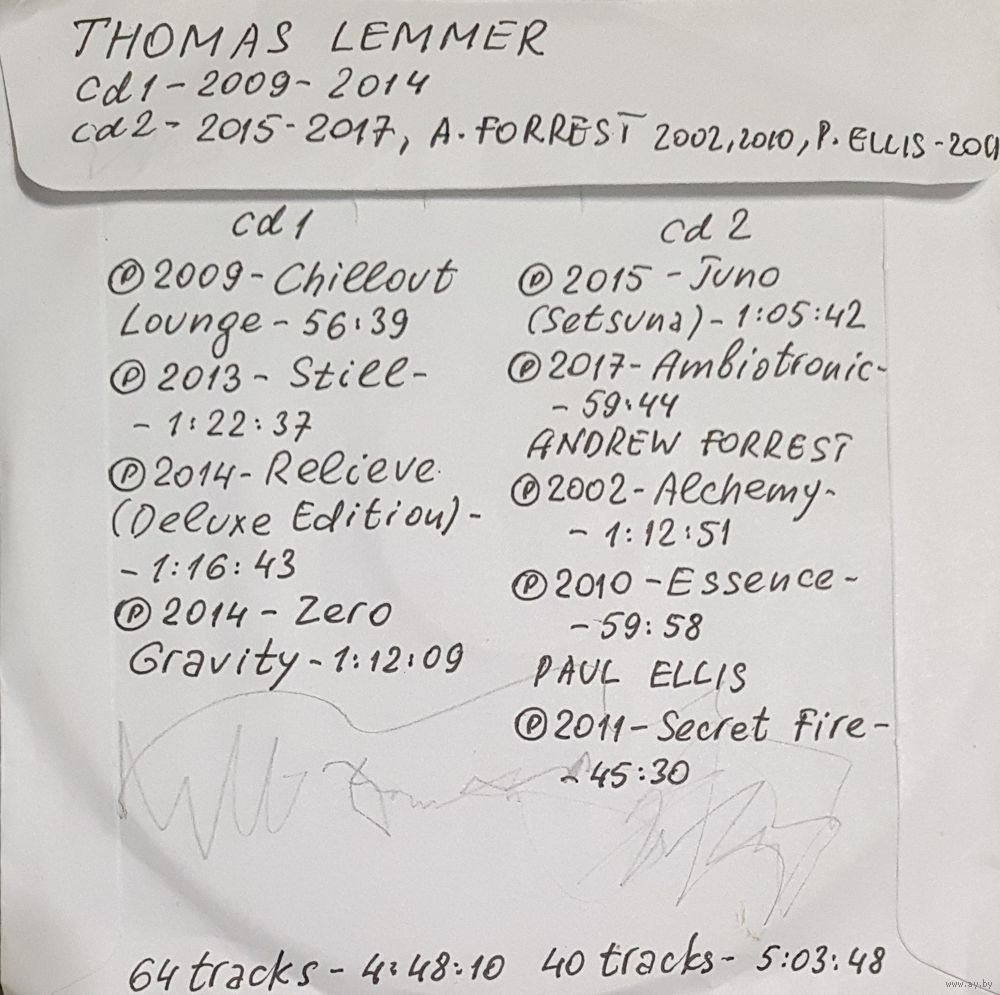 THOMAS LEMMER
cd1 - 2009 - 2014
cd2 - 2015 - 2017, A. FORREST 2002, 2010, P. ELLIS - 201
cd 1
Ⓟ 2009 - Chillout
Lounge - 56:39
Ⓟ 2013 - Still -
- 1:22:37
Ⓟ 2014 - Relieve
(Deluxe Edition) -
- 1:16:43
Ⓟ 2014 - Zero
Gravity - 1:12:09
64 tracks - 4:48:10
cd 2
Ⓟ 2015 - Juno
(Setsuna) - 1:05:42
Ⓟ 2017 - Ambiotronic -
- 59:44
ANDREW FORREST
Ⓟ 2002 - Alchemy -
- 1:12:51
Ⓟ 2010 - Essence -
- 59:58
PAUL ELLIS
Ⓟ 2011 - Secret Fire -
- 45:30
40 tracks - 5:03:48
www.ay.by